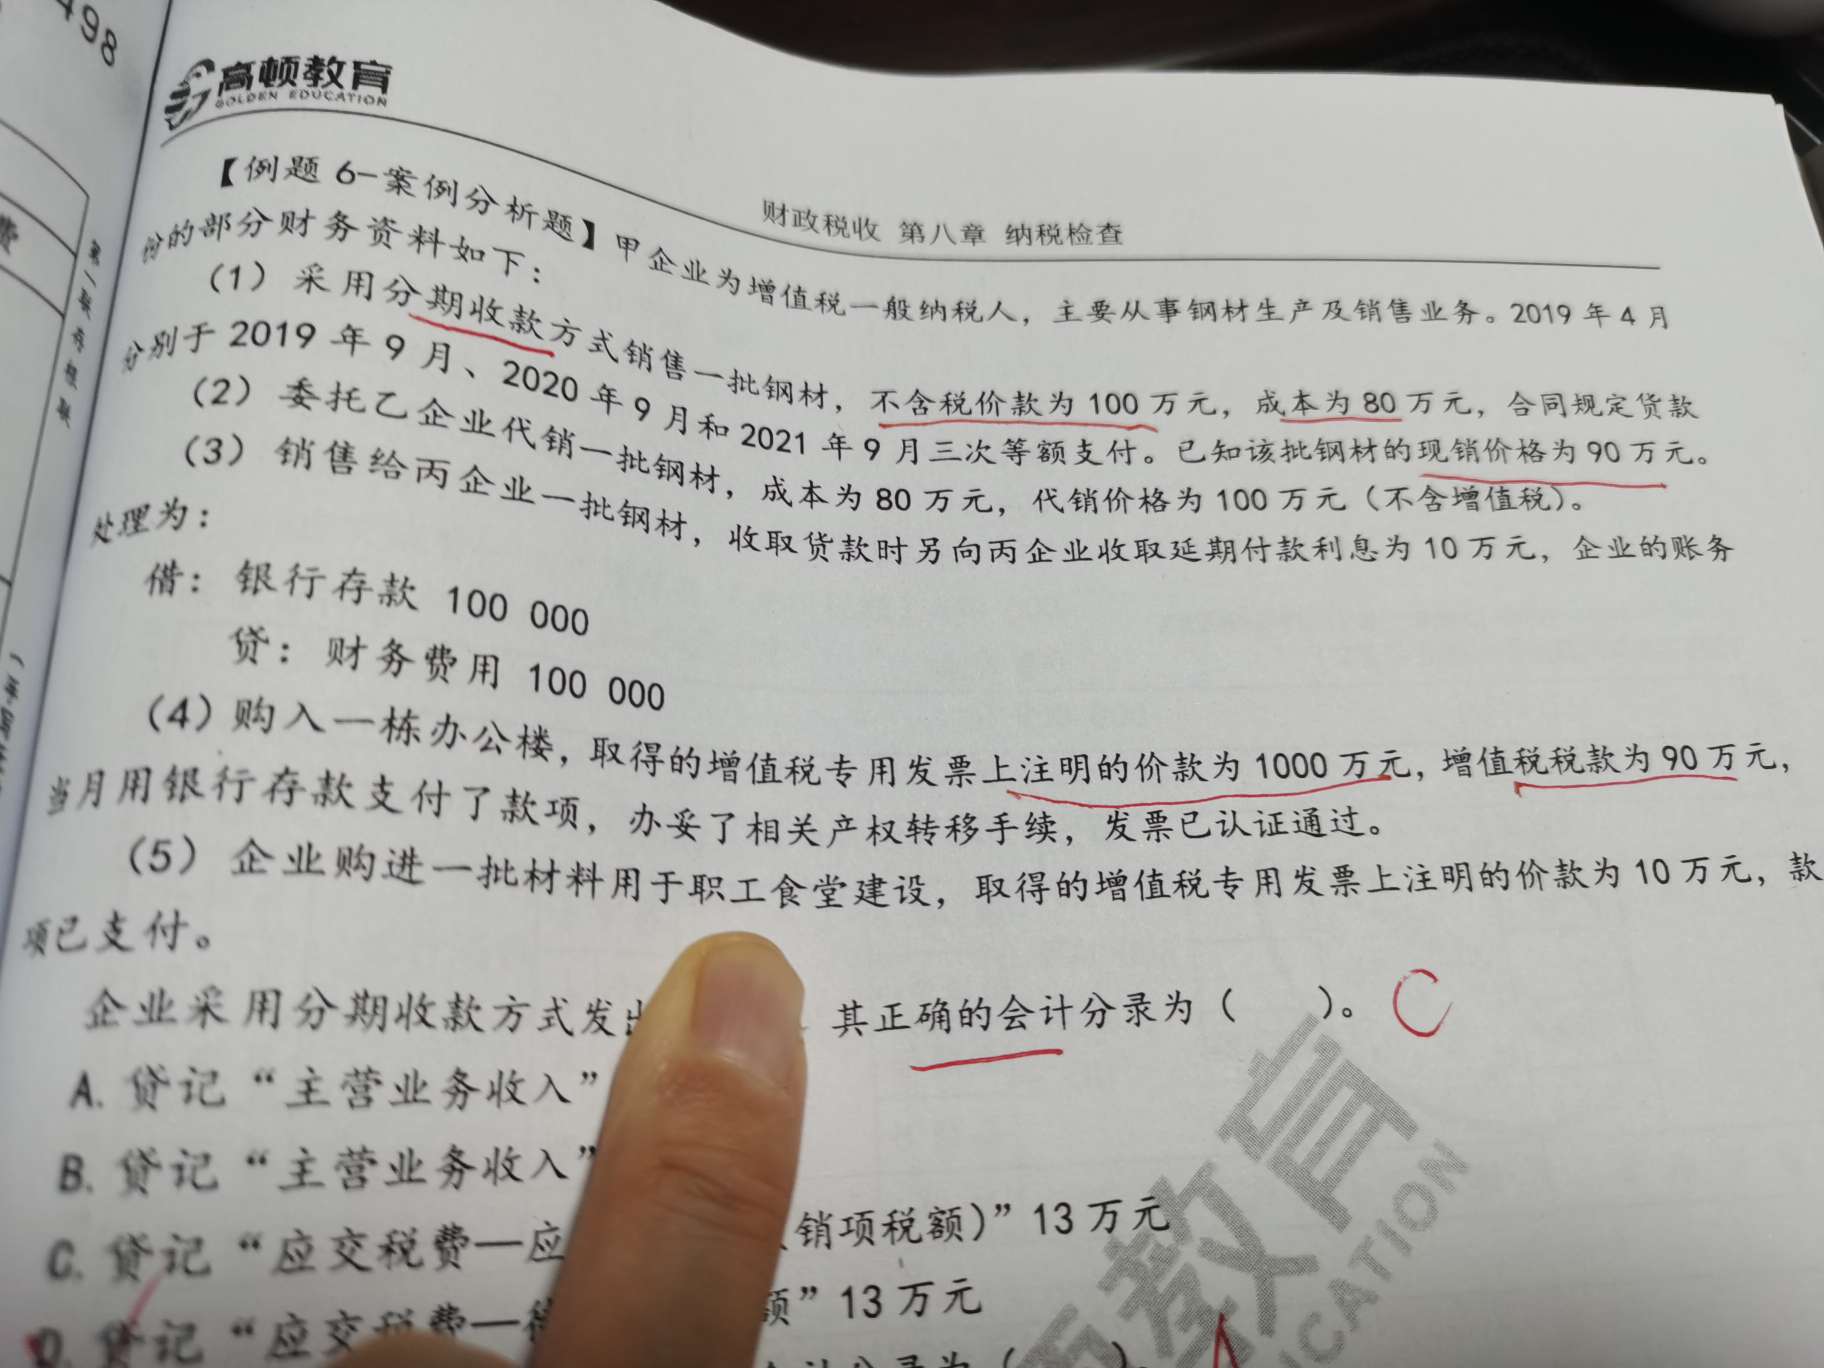 498
高顿教育
GOLDEN EDUCATION
财政税收 第八章 纳税检查
【例题 6-案例分析题】甲企业为增值税一般纳税人，主要从事钢材生产及销售业务。2019 年 4 月
份的部分财务资料如下：
（1）采用分期收款方式销售一批钢材，不含税价款为 100 万元，成本为 80 万元，合同规定货款
分别于 2019 年 9 月、2020 年 9 月和 2021 年 9 月三次等额支付。已知该批钢材的现销价格为 90 万元。
（2）委托乙企业代销一批钢材，成本为 80 万元，代销价格为 100 万元（不含增值税）。
（3）销售给丙企业一批钢材，收取货款时另向丙企业收取延期付款利息为 10 万元，企业的账务
处理为：
借：银行存款 100 000
贷：财务费用 100 000
（4）购入一栋办公楼，取得的增值税专用发票上注明的价款为 1000 万元，增值税税款为 90 万元，
当月用银行存款支付了款项，办妥了相关产权转移手续，发票已认证通过。
（5）企业购进一批材料用于职工食堂建设，取得的增值税专用发票上注明的价款为 10 万元，款
项已支付。
企业采用分期收款方式发出 其正确的会计分录为（ ）。 C
A. 贷记“主营业务收入”
B. 贷记“主营业务收入”
C. 贷记“应交税费—应 销项税额）”13 万元
D. 贷记“应交税费—待 额”13 万元
会计分录为（ ）。
教育
CATION
费
第一联存根联